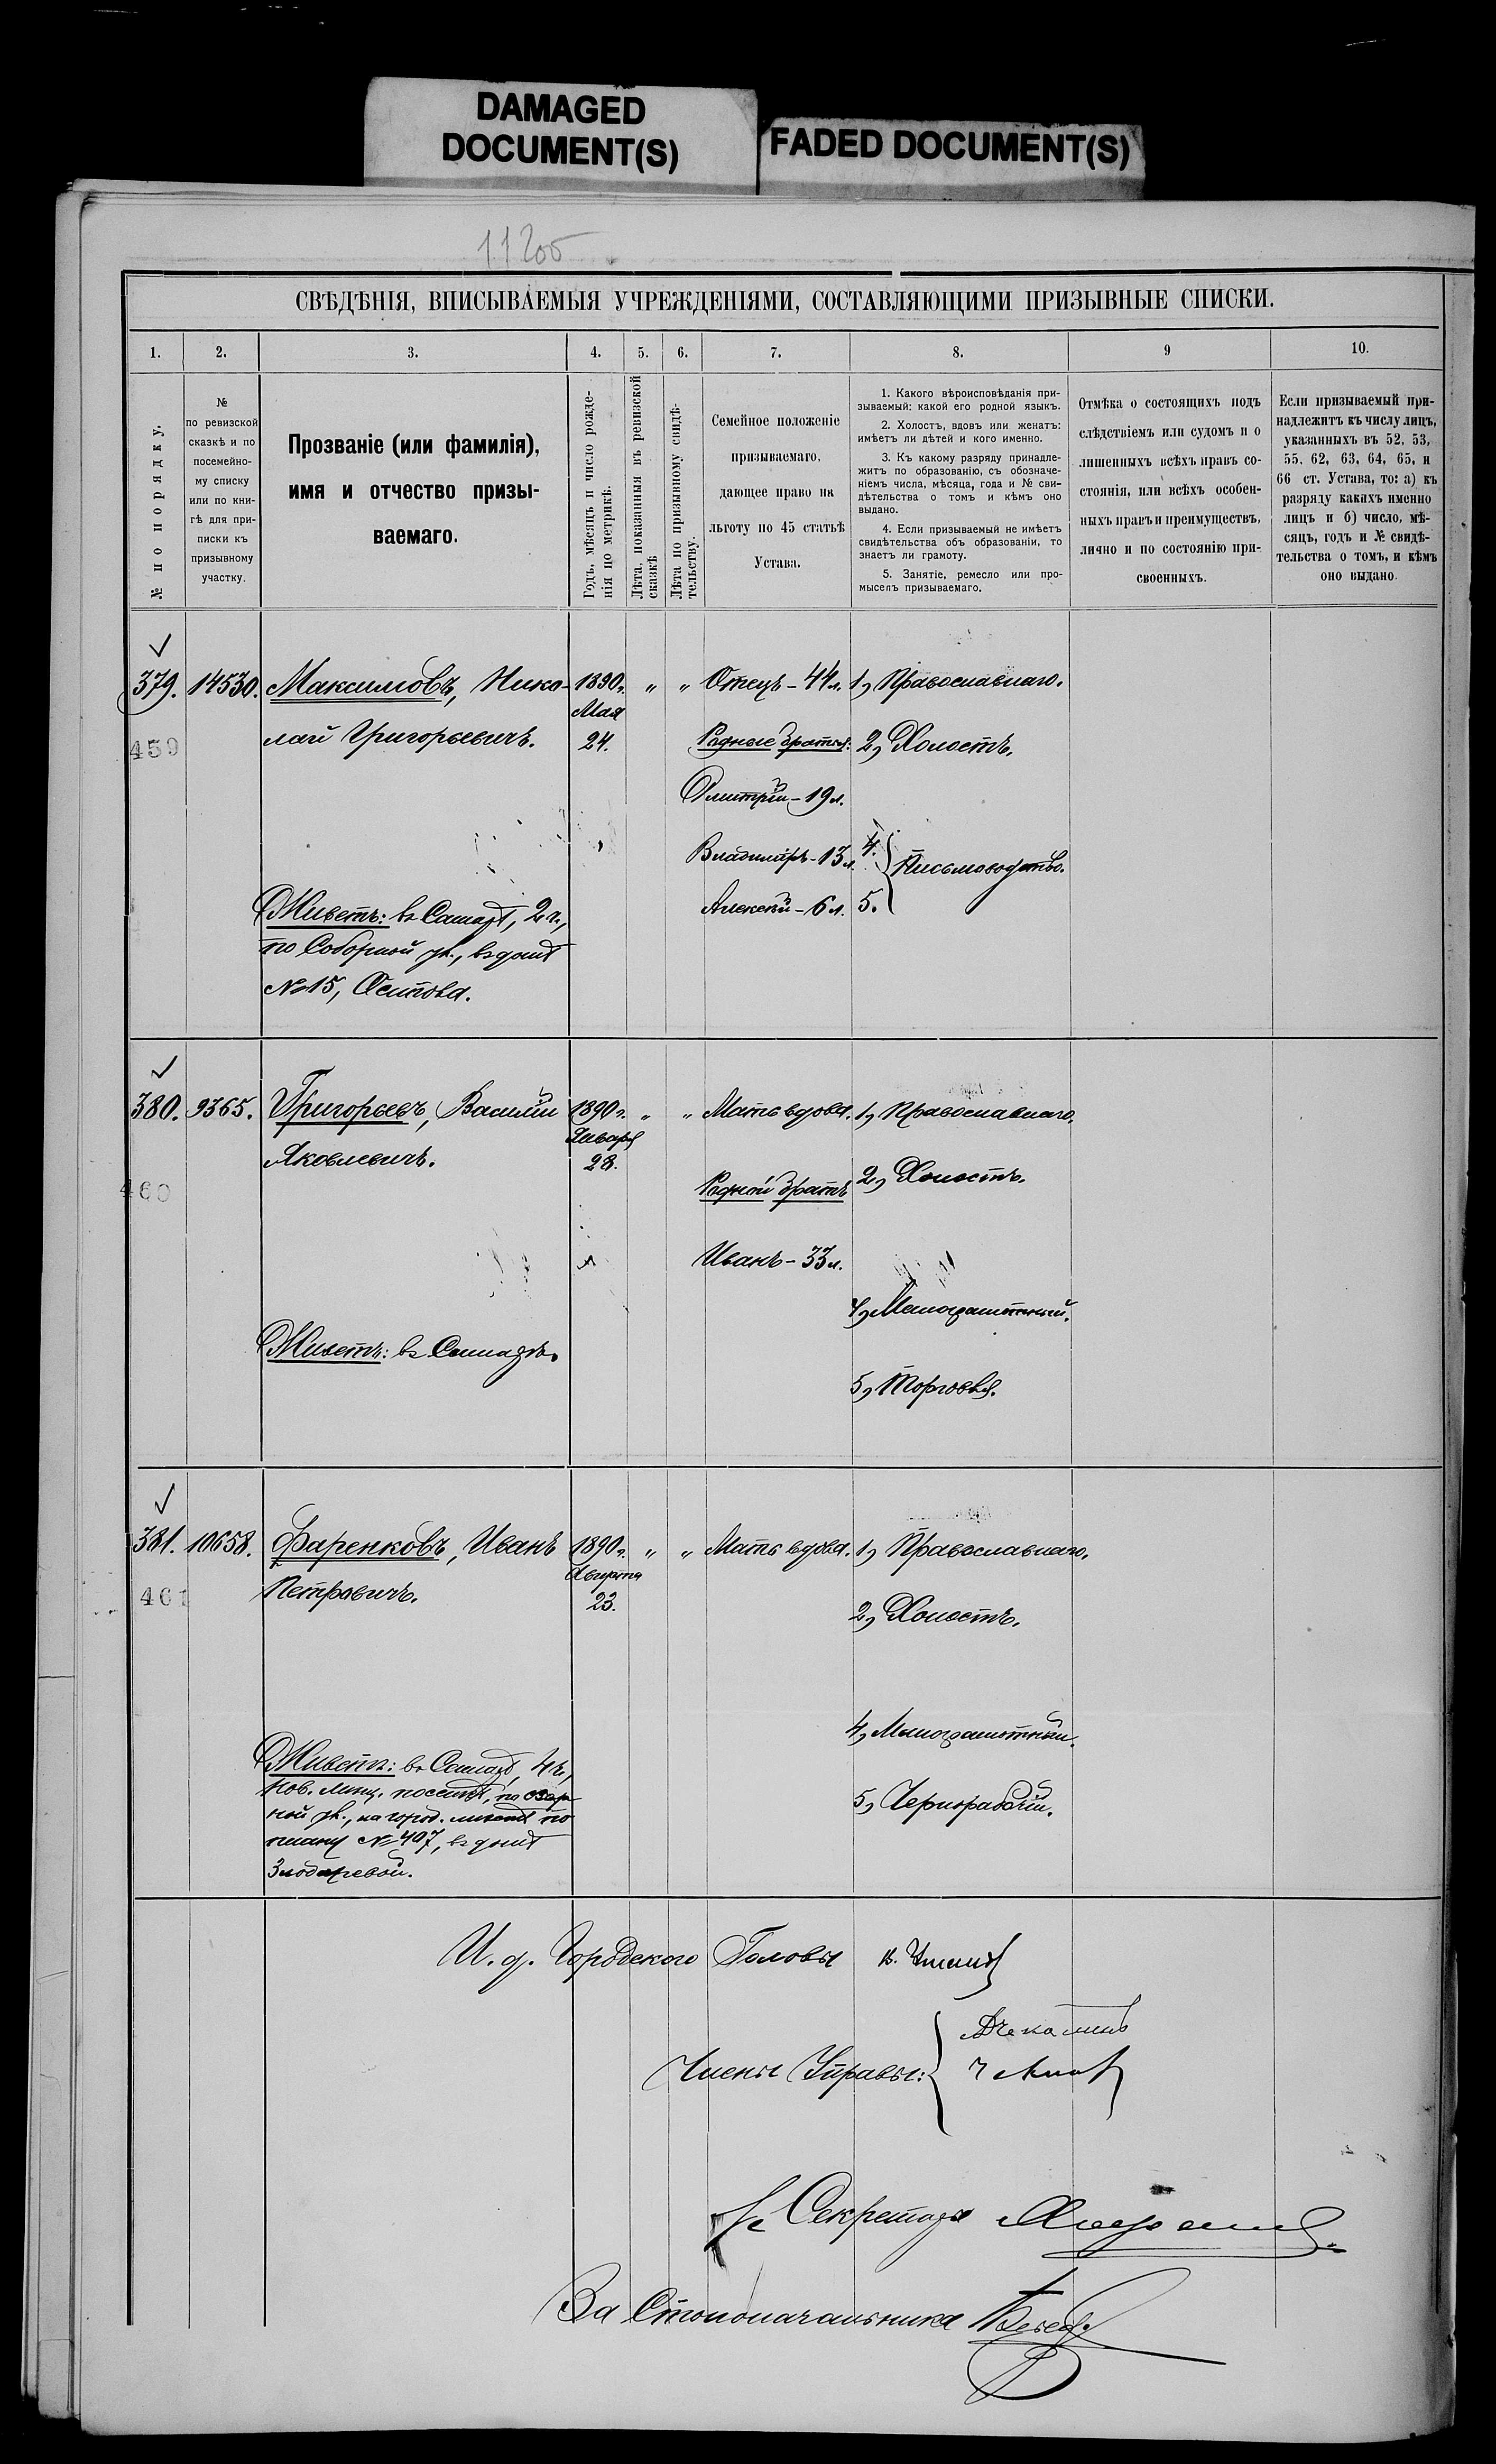 DAMAGED
DOCUMENT(S)
FADED DOCUMENT(S)
СВѢДѢНІЯ, ВПИСЫВАЕМЫЯ УЧРЕЖДЕНІЯМИ, СОСТАВЛЯЮЩИМИ ПРИЗЫВНЫЕ СПИСКИ.
1.
2.
3.
4.
5.
6.
7.
8.
9
10.
№ по порядку.
№
по ревизской
сказкѣ и по
посемейно-
му списку
или по кни-
гѣ для при-
писки къ
призывному
участку.
Прозваніе (или фамилія),
имя и отчество призы-
ваемаго.
Годъ, мѣсяцъ и число рожде-
нія по метрикѣ.
Лѣта, показанныя въ ревизской
сказкѣ
Лѣта по призывному свидѣ-
тельству.
Семейное положеніе
призываемаго,
дающее право на
льготу по 45 статьѣ
Устава.
1. Какого вѣроисповѣданія при-
зываемый: какой его родной языкъ.
2. Холостъ, вдовъ или женатъ:
имѣетъ ли дѣтей и кого именно.
3. Къ какому разряду принадле-
житъ по образованію, съ обозначе-
ніемъ числа, мѣсяца, года и № сви-
дѣтельства о томъ и кѣмъ оно
выдано.
4. Если призываемый не имѣетъ
свидѣтельства объ образованіи, то
знаетъ ли грамоту.
5. Занятіе, ремесло или про-
мыселъ призываемаго.
Отмѣка о состоящихъ подъ
слѣдствіемъ или судомъ и о
лишенныхъ всѣхъ правъ со-
стоянія, или всѣхъ особен-
ныхъ правъ и преимуществъ,
лично и по состоянію при-
своенныхъ.
Если призываемый при-
надлежитъ къ числу лицъ,
указанныхъ въ 52, 53,
55, 62, 63, 64, 65, и
66 ст. Устава, то: а) къ
разряду какихъ именно
лицъ и б) число, мѣ-
сяцъ, годъ и № свидѣ-
тельства о томъ, и кѣмъ
оно выдано.
379. 14530. Максимовъ, Нико- 1890г. " " Отецъ - 44 л. 1, Православнаго.
Мая
459 лай Григорьевичъ. 24. Родные братья: 2, Холостъ.
Дмитрій - 19 л.
Владиміръ - 13 л. 4. Письмоводство.
Алексѣй - 6 л. 5.
Живетъ: въ Самарѣ, 2 ч.,
по Соборной ул., въ домѣ
№ 15, Осипова.
380. 9365. Григорьевъ, Василій 1890г. " " Мать вдова. 1, Православнаго.
Января
Яковлевичъ. 28.
460 Родной братъ 2, Холостъ.
Иванъ - 33 л.
4, Малограмотный.
Живетъ: въ Самарѣ.
5, Торговля.
381. 10658. Фаренковъ, Иванъ 1890г. " " Мать вдова. 1, Православнаго.
Августа
461 Петровичъ. 23.
2, Холостъ.
4, Малограмотный.
Живетъ: въ Самарѣ, 4 ч.,
Нов. мѣщ. поселкѣ, по Озер
ной ул., на город. мѣстѣ по
плану № 407, въ домѣ
5, Чернорабочій.
И. д. Городского Головы
Члены Управы:
Секретаря
За Столоначальника